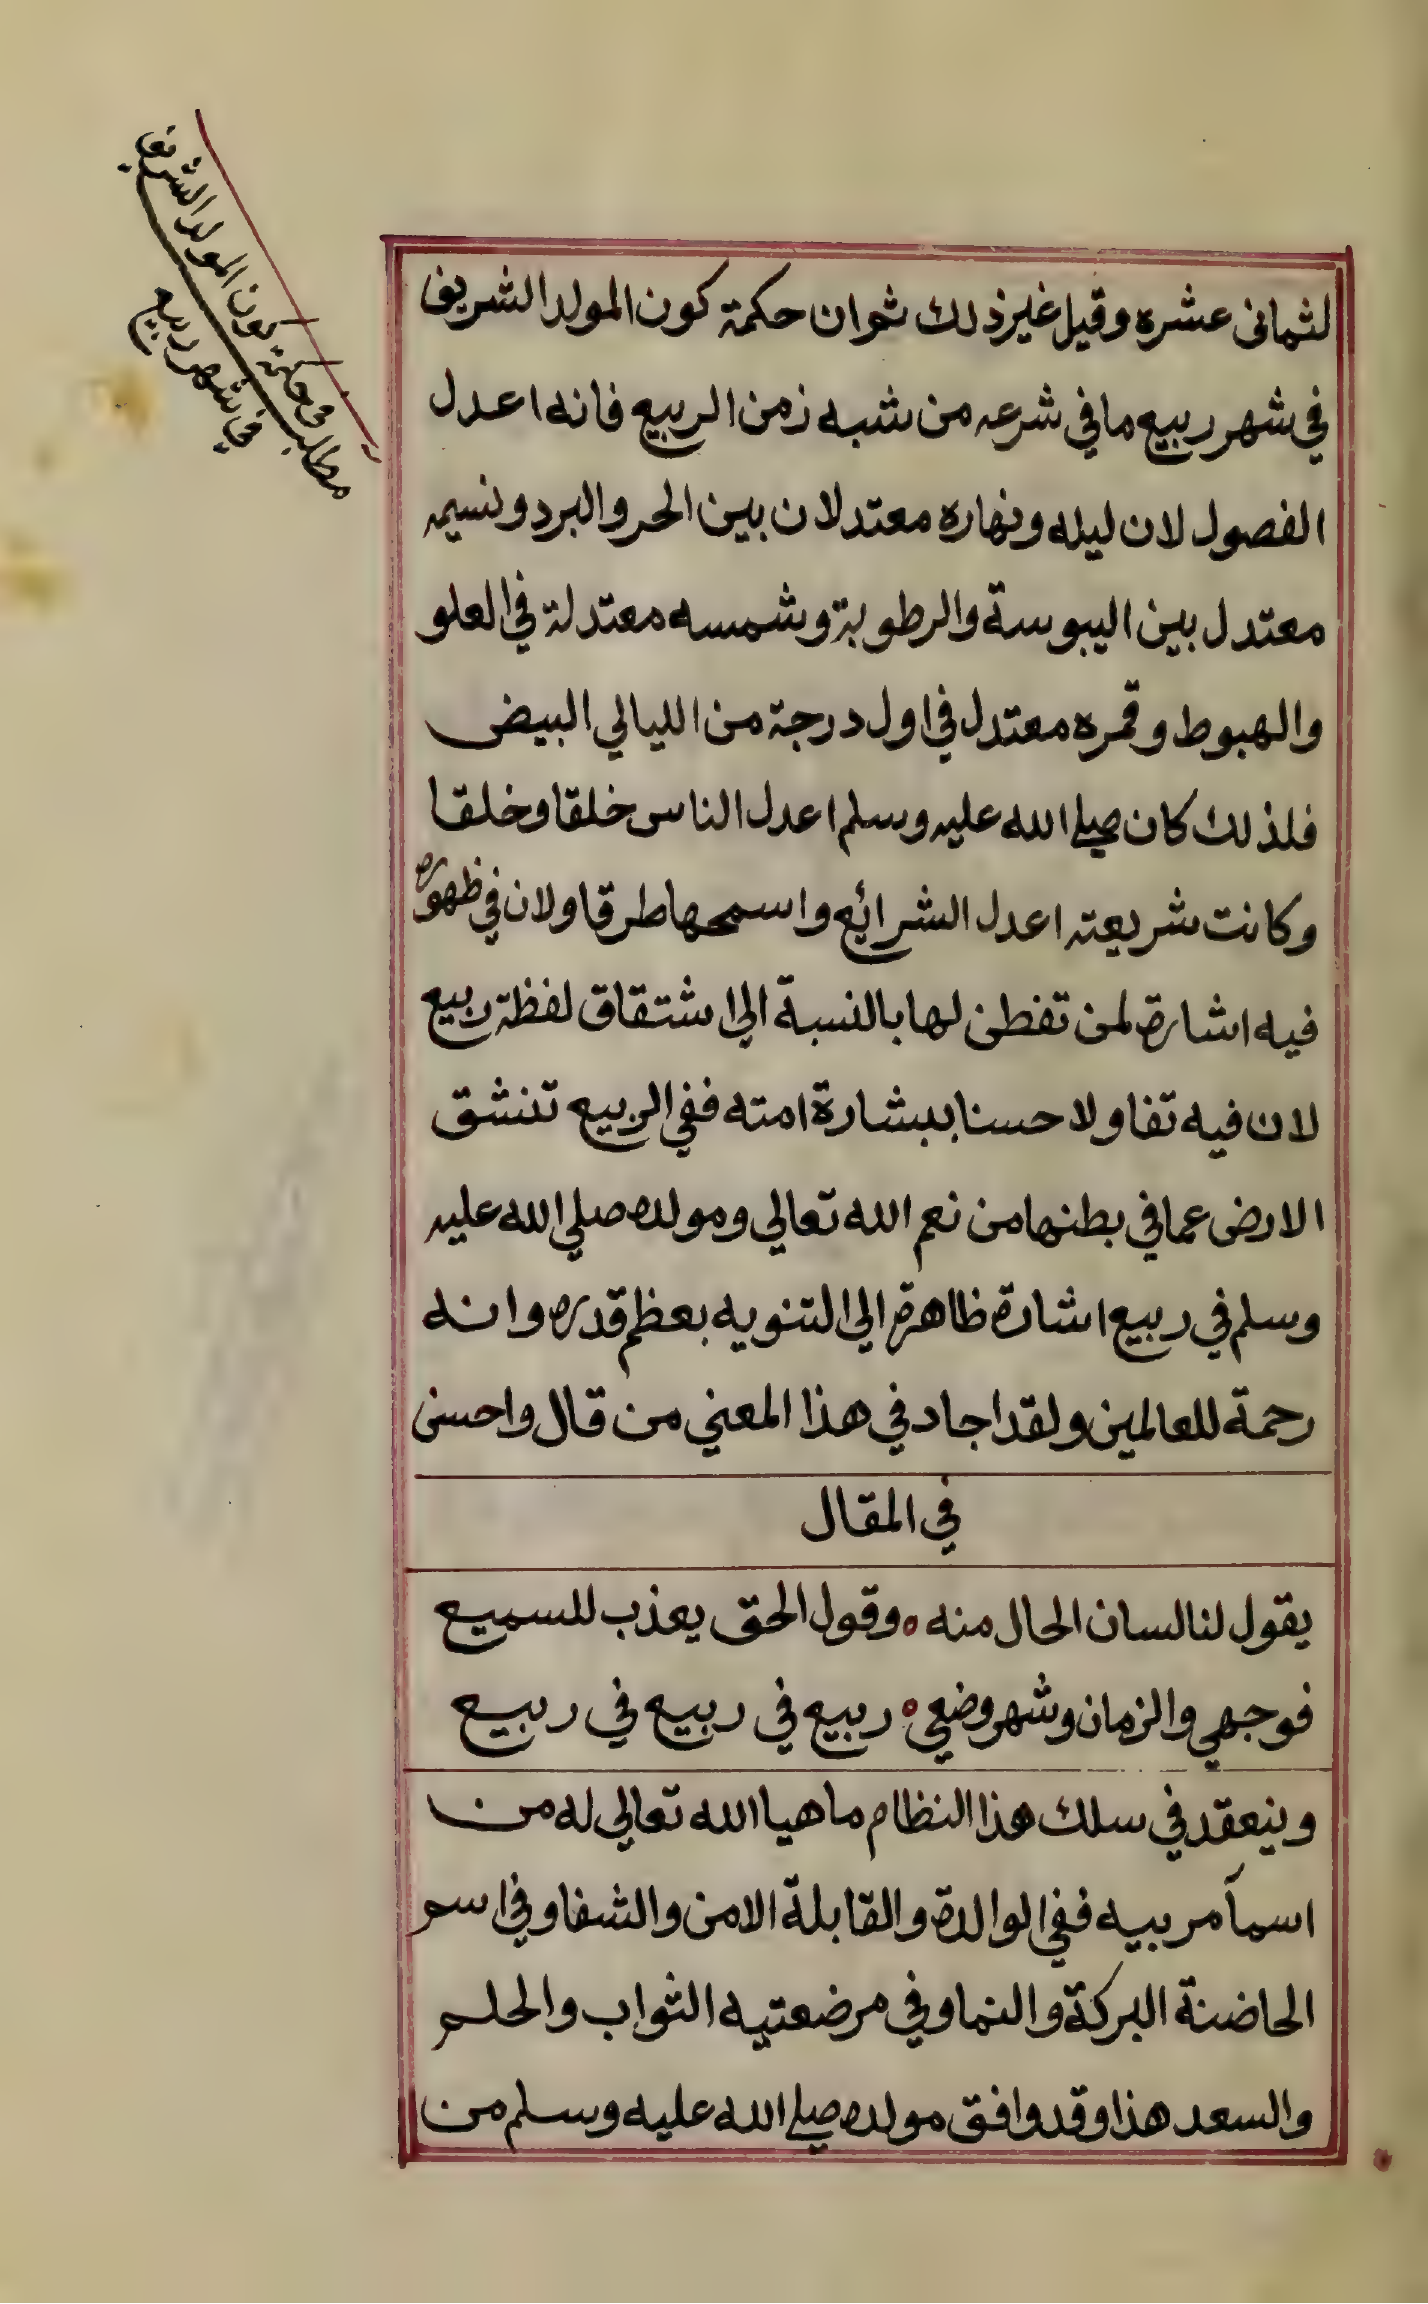 مطلب في حكمة كون المولد الشريف
في شهر ربيع
لثمانى عشره وقيل غير ذلك ثم ان حكمة كون المولد الشريف
في شهر ربيع ما في شرعه من شبه زمن الربيع فانه اعدل
الفصول لان ليله ونهاره معتدلان بين الحر والبرد ونسيمه
معتدل بين اليبوسة والرطوبة وشمسه معتدلة في العلو
والهبوط وقمره معتدل في اول درجة من الليالي البيض
فلذلك كان صلي الله عليه وسلم اعدل الناس خلقا وخلقا
وكانت شريعته اعدل الشرائع واسمحها طرقا ولان في ظهوره
فيه اشارة لمن تفطن لها بالنسبة الي اشتقاق لفظة ربيع
لان فيه تفاولا حسنا ببشارة امته ففي الربيع تنشق
الارض عما في بطنها من نعم الله تعالي ومولده صلي الله عليه
وسلم في ربيع اشارة ظاهرة الي التنويه بعظم قدره وانه
رحمة للعالمين ولقد اجاد في هذا المعني من قال واحسن
في المقال
يقول لنا لسان الحال منه ه وقول الحق يعذب للسميع
فوجهي والزمان وشهر وضعي ه ربيع في ربيع في ربيع
وينعقد في سلك هذا النظام ما هيا الله تعالي له من
اسمآ مربيه ففي الوالدة والقابلة الامن والشفا وفي اسم
الحاضنة البركة والنما وفي مرضعتيه الثواب والحلم
والسعد هذا وقد وافق مولده صلي الله عليه وسلم من